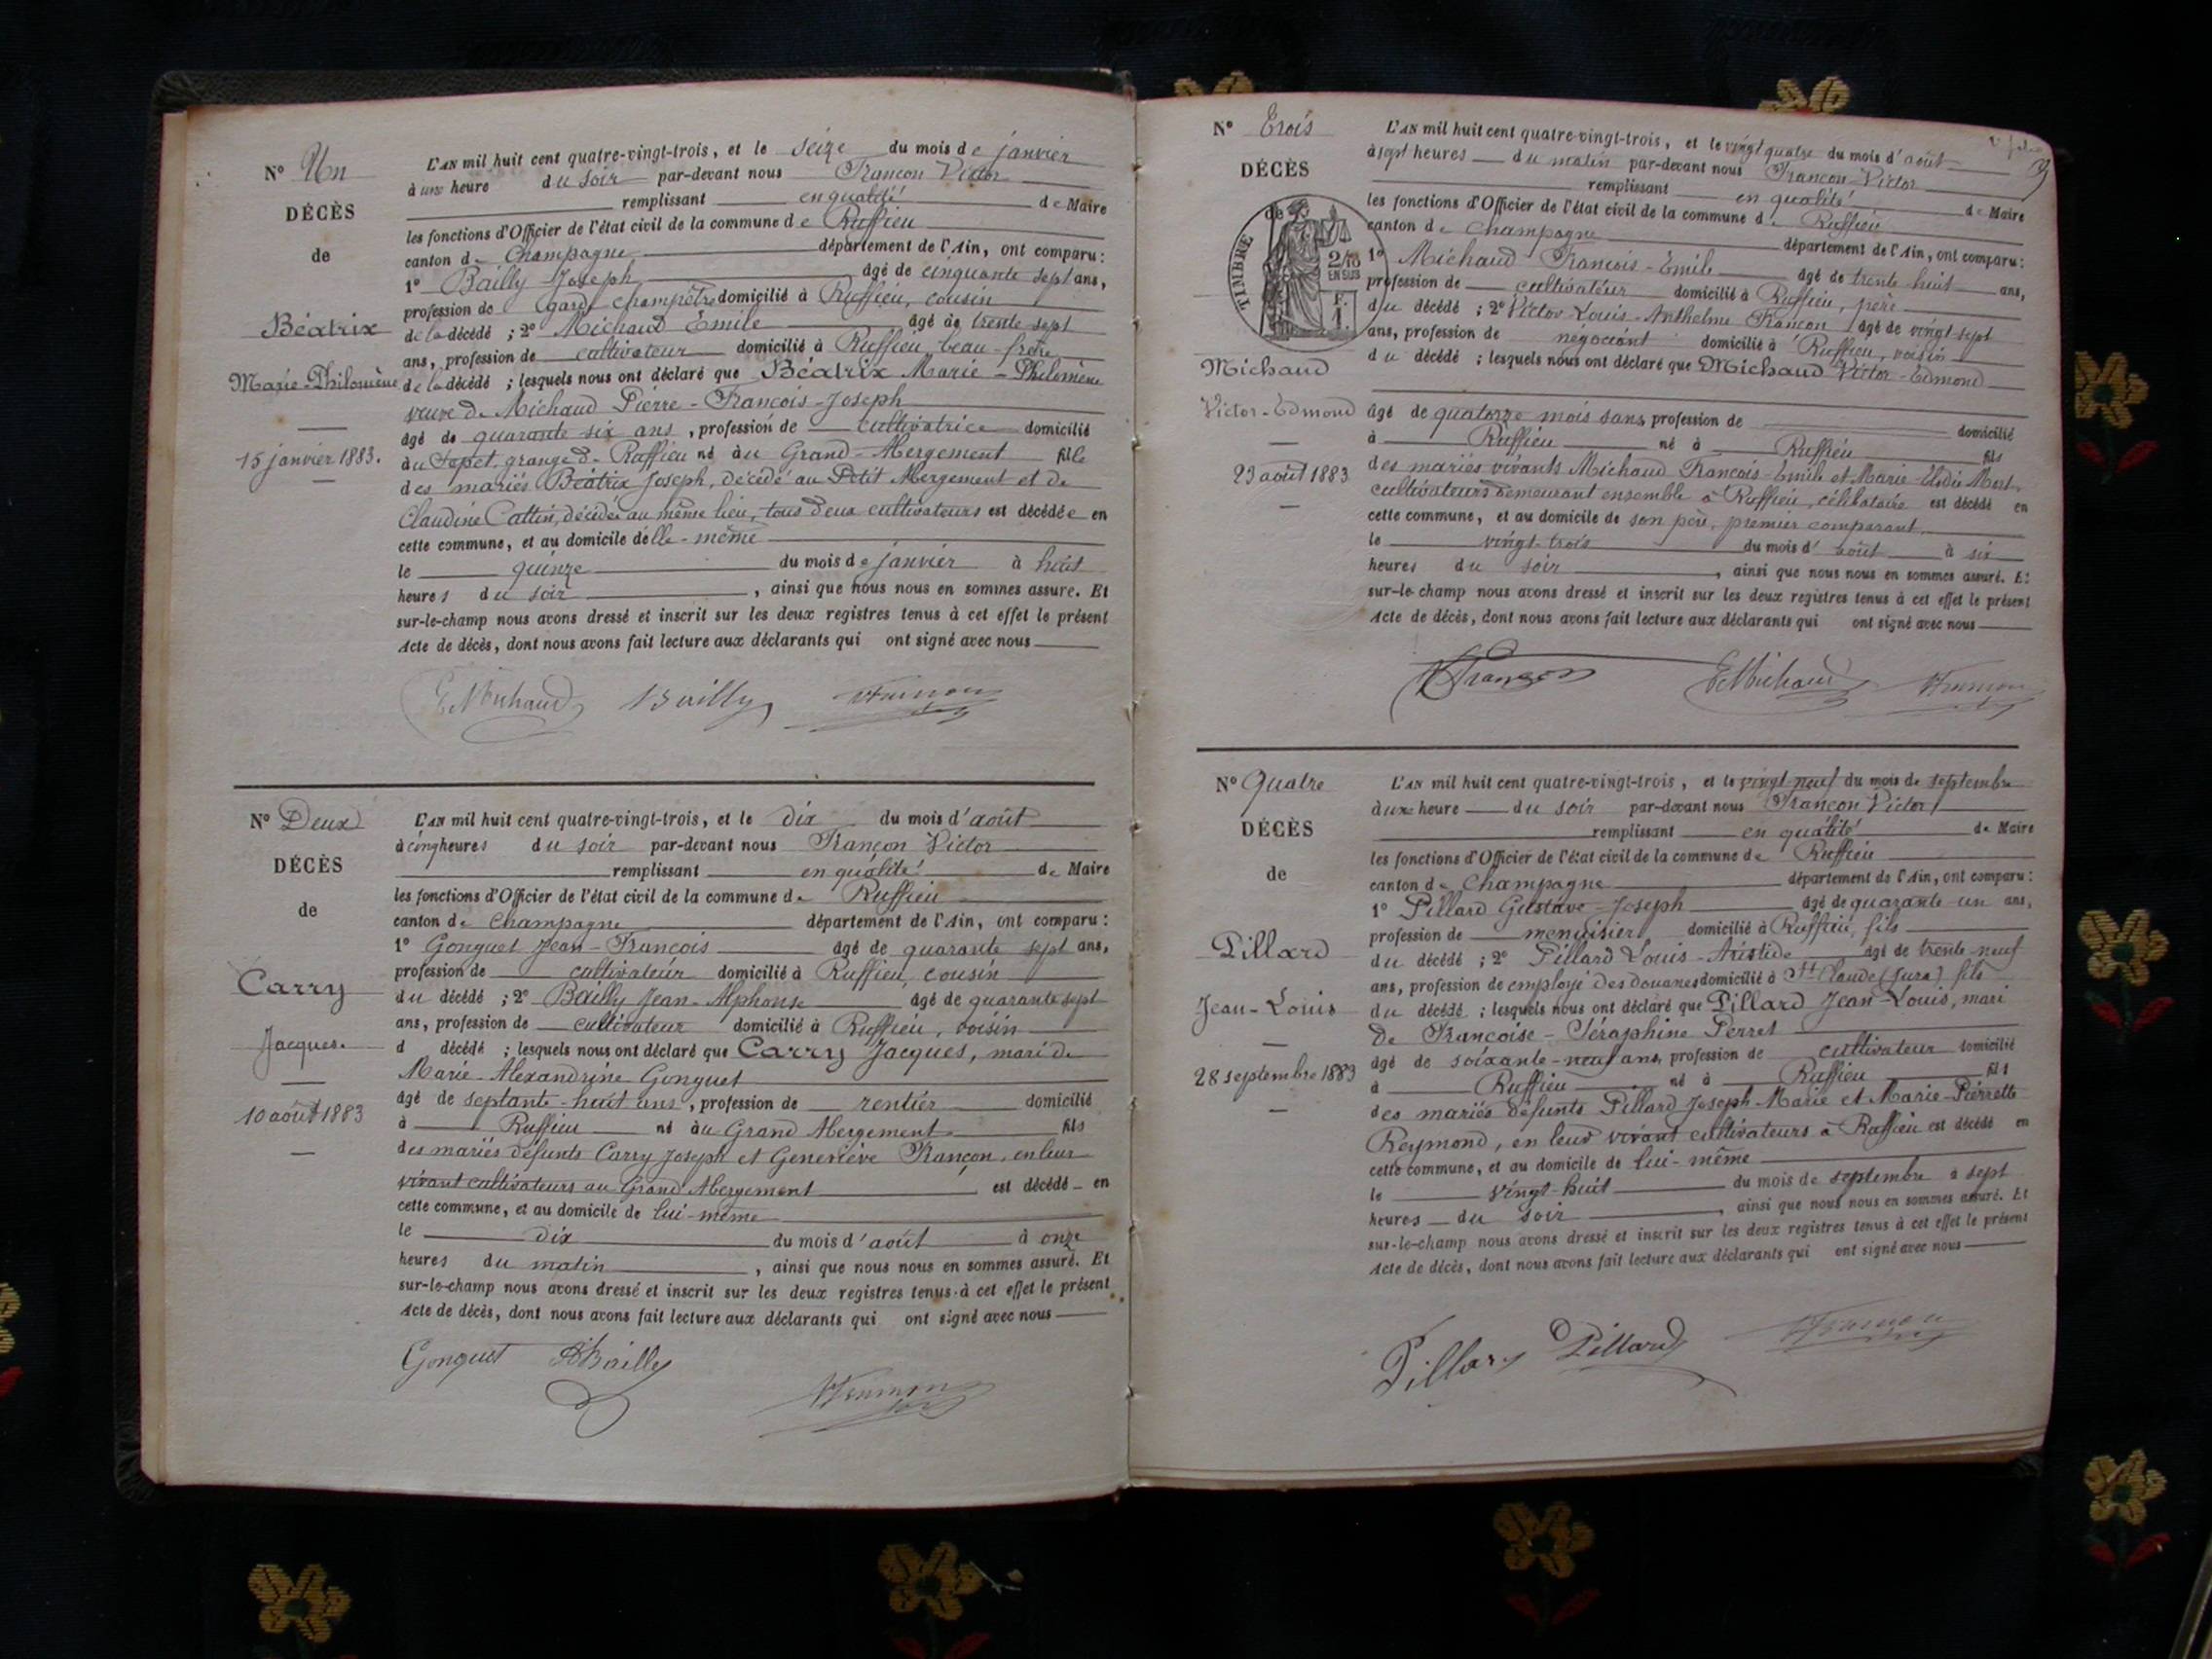 N° Un
DÉCÈS
de
Béatrix
Marie-Philomène
15 janvier 1883.
L'AN mil huit cent quatre-vingt-trois, et le seize du mois de janvier
à une heure du soir par-devant nous Françon Victor
remplissant en qualité de Maire
les fonctions d'Officier de l'état civil de la commune de Ruffieu
canton de Champagne département de l'Ain, ont comparu :
1° Bailly Joseph âgé de cinquante sept ans,
profession de garde champêtre domicilié à Ruffieu, cousin
de la décédé ; 2° Michaud Émile âgé de trente sept
ans, profession de cultivateur domicilié à Ruffieu, beau-frère
de la décédé ; lesquels nous ont déclaré que Béatrix Marie-Philomène
veuve de Michaud Pierre-François-Joseph
âgé de quarante six ans, profession de cultivatrice domicilié
au grange de Ruffieu né au Grand-Abergement fille
des mariés Béatrix Joseph, décédé au Petit Abergement et de
Claudine Cattin, décédée au même lieu, tous deux cultivateurs est décédée en
cette commune, et au domicile d'elle-même
le quinze du mois de janvier à huit
heures du soir, ainsi que nous nous en sommes assuré. Et
sur-le-champ nous avons dressé et inscrit sur les deux registres tenus à cet effet le présent
Acte de décès, dont nous avons fait lecture aux déclarants qui ont signé avec nous
E Michaud Bailly VFrançon
N° Deux
DÉCÈS
de
Carry
Jacques.
10 août 1883
L'AN mil huit cent quatre-vingt-trois, et le dix du mois d'août
à cinq heures du soir par-devant nous Françon Victor
remplissant en qualité de Maire
les fonctions d'Officier de l'état civil de la commune de Ruffieu
canton de Champagne département de l'Ain, ont comparu :
1° Gonguet Jean-François âgé de quarante sept ans,
profession de cultivateur domicilié à Ruffieu, cousin
du décédé ; 2° Bailly Jean-Alphonse âgé de quarante sept
ans, profession de cultivateur domicilié à Ruffieu, voisin
d décédé ; lesquels nous ont déclaré que Carry Jacques, mari de
Marie-Alexandrine Gonguet
âgé de septante-huit ans, profession de rentier domicilié
à Ruffieu né au Grand Abergement fils
des mariés défunts Carry Joseph et Geneviève Françon, en leur
vivant cultivateurs au Grand Abergement est décédé en
cette commune, et au domicile de lui-même
le dix du mois d'août à onze
heures du matin, ainsi que nous nous en sommes assuré. Et
sur-le-champ nous avons dressé et inscrit sur les deux registres tenus à cet effet le présent
Acte de décès, dont nous avons fait lecture aux déclarants qui ont signé avec nous
Gonguet Bailly VFrançon
N° Trois
DÉCÈS
de
TIMBRE
2/10
EN SUS
Michaud
Victor-Edmond
23 août 1883
L'AN mil huit cent quatre-vingt-trois, et le vingt quatre du mois d'août
à sept heures du matin par-devant nous Françon Victor
remplissant en qualité de Maire
les fonctions d'Officier de l'état civil de la commune de Ruffieu
canton de Champagne département de l'Ain, ont comparu :
1° Michaud François-Emile âgé de trente-huit ans,
profession de cultivateur domicilié à Ruffieu, père
du décédé ; 2° Victor-Louis-Anthelme Françon âgé de vingt sept
ans, profession de négociant domicilié à Ruffieu, voisin
du décédé ; lesquels nous ont déclaré que Michaud Victor-Edmond
âgé de quatorze mois sans profession de domicilié
à Ruffieu né à Ruffieu fils
des mariés vivants Michaud François-Emile et Marie-Elodie
cultivateurs demeurant ensemble à Ruffieu, célibataire est décédé en
cette commune, et au domicile de son père, premier comparant
le vingt-trois du mois d'août à six
heures du soir, ainsi que nous nous en sommes assuré. Et
sur-le-champ nous avons dressé et inscrit sur les deux registres tenus à cet effet le présent
Acte de décès, dont nous avons fait lecture aux déclarants qui ont signé avec nous
Françon E Michaud VFrançon
N° Quatre
DÉCÈS
de
Pillard
Jean-Louis
28 septembre 1883
L'AN mil huit cent quatre-vingt-trois, et le vingt-neuf du mois de septembre
à une heure du soir par-devant nous Françon Victor
remplissant en qualité de Maire
les fonctions d'Officier de l'état civil de la commune de Ruffieu
canton de Champagne département de l'Ain, ont comparu :
1° Pillard Gustave-Joseph âgé de quarante un ans,
profession de menuisier domicilié à Ruffieu, fils
du décédé ; 2° Pillard Louis-Aristide âgé de trente-neuf
ans, profession de employé des douanes domicilié à St Claude (Jura) fils
du décédé ; lesquels nous ont déclaré que Pillard Jean-Louis, mari
de Françoise-Séraphine Perret
âgé de soixante-neuf ans, profession de cultivateur domicilié
à Ruffieu né à Ruffieu fils
des mariés défunts Pillard Joseph-Marie et Marie-Pierrette
Reymond, en leur vivant cultivateurs à Ruffieu est décédé en
cette commune, et au domicile de lui-même
le vingt-huit du mois de septembre à sept
heures du soir, ainsi que nous nous en sommes assuré. Et
sur-le-champ nous avons dressé et inscrit sur les deux registres tenus à cet effet le présent
Acte de décès, dont nous avons fait lecture aux déclarants qui ont signé avec nous
Pillard Pillard VFrançon